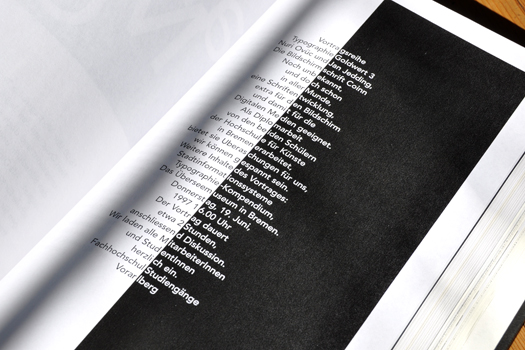 Vortragsreihe
Typographie Goldwert 3
Nuri Ovüc und Jan Jedding,
Die Bildschirmschrift Coinn
Noch unbekannt,
und doch schon
in aller Munde,
eine Schriftentwicklung,
extra für den Bildschirm
und damit für die
Digitalen Medien geeignet.
Als Diplomarbeit
von den beiden Schülern
der Hochschule für Künste
in Bremen erarbeitet,
bietet sie Überraschungen für uns,
wir können gespannt sein.
Weitere Inhalte des Vortrages:
Stadtinformationssysteme
Typographie-Kompendium,
Das Überseemuseum in Bremen.
Donnerstag, 19. Juni,
1997 16.00 Uhr
Der Vortrag dauert
etwa 2 Stunden,
anschliessend Diskussion.
Wir laden alle MitarbeiterInnen
und StudentInnen
herzlich ein.
Fachhochschul Studiengänge
Vorarlberg